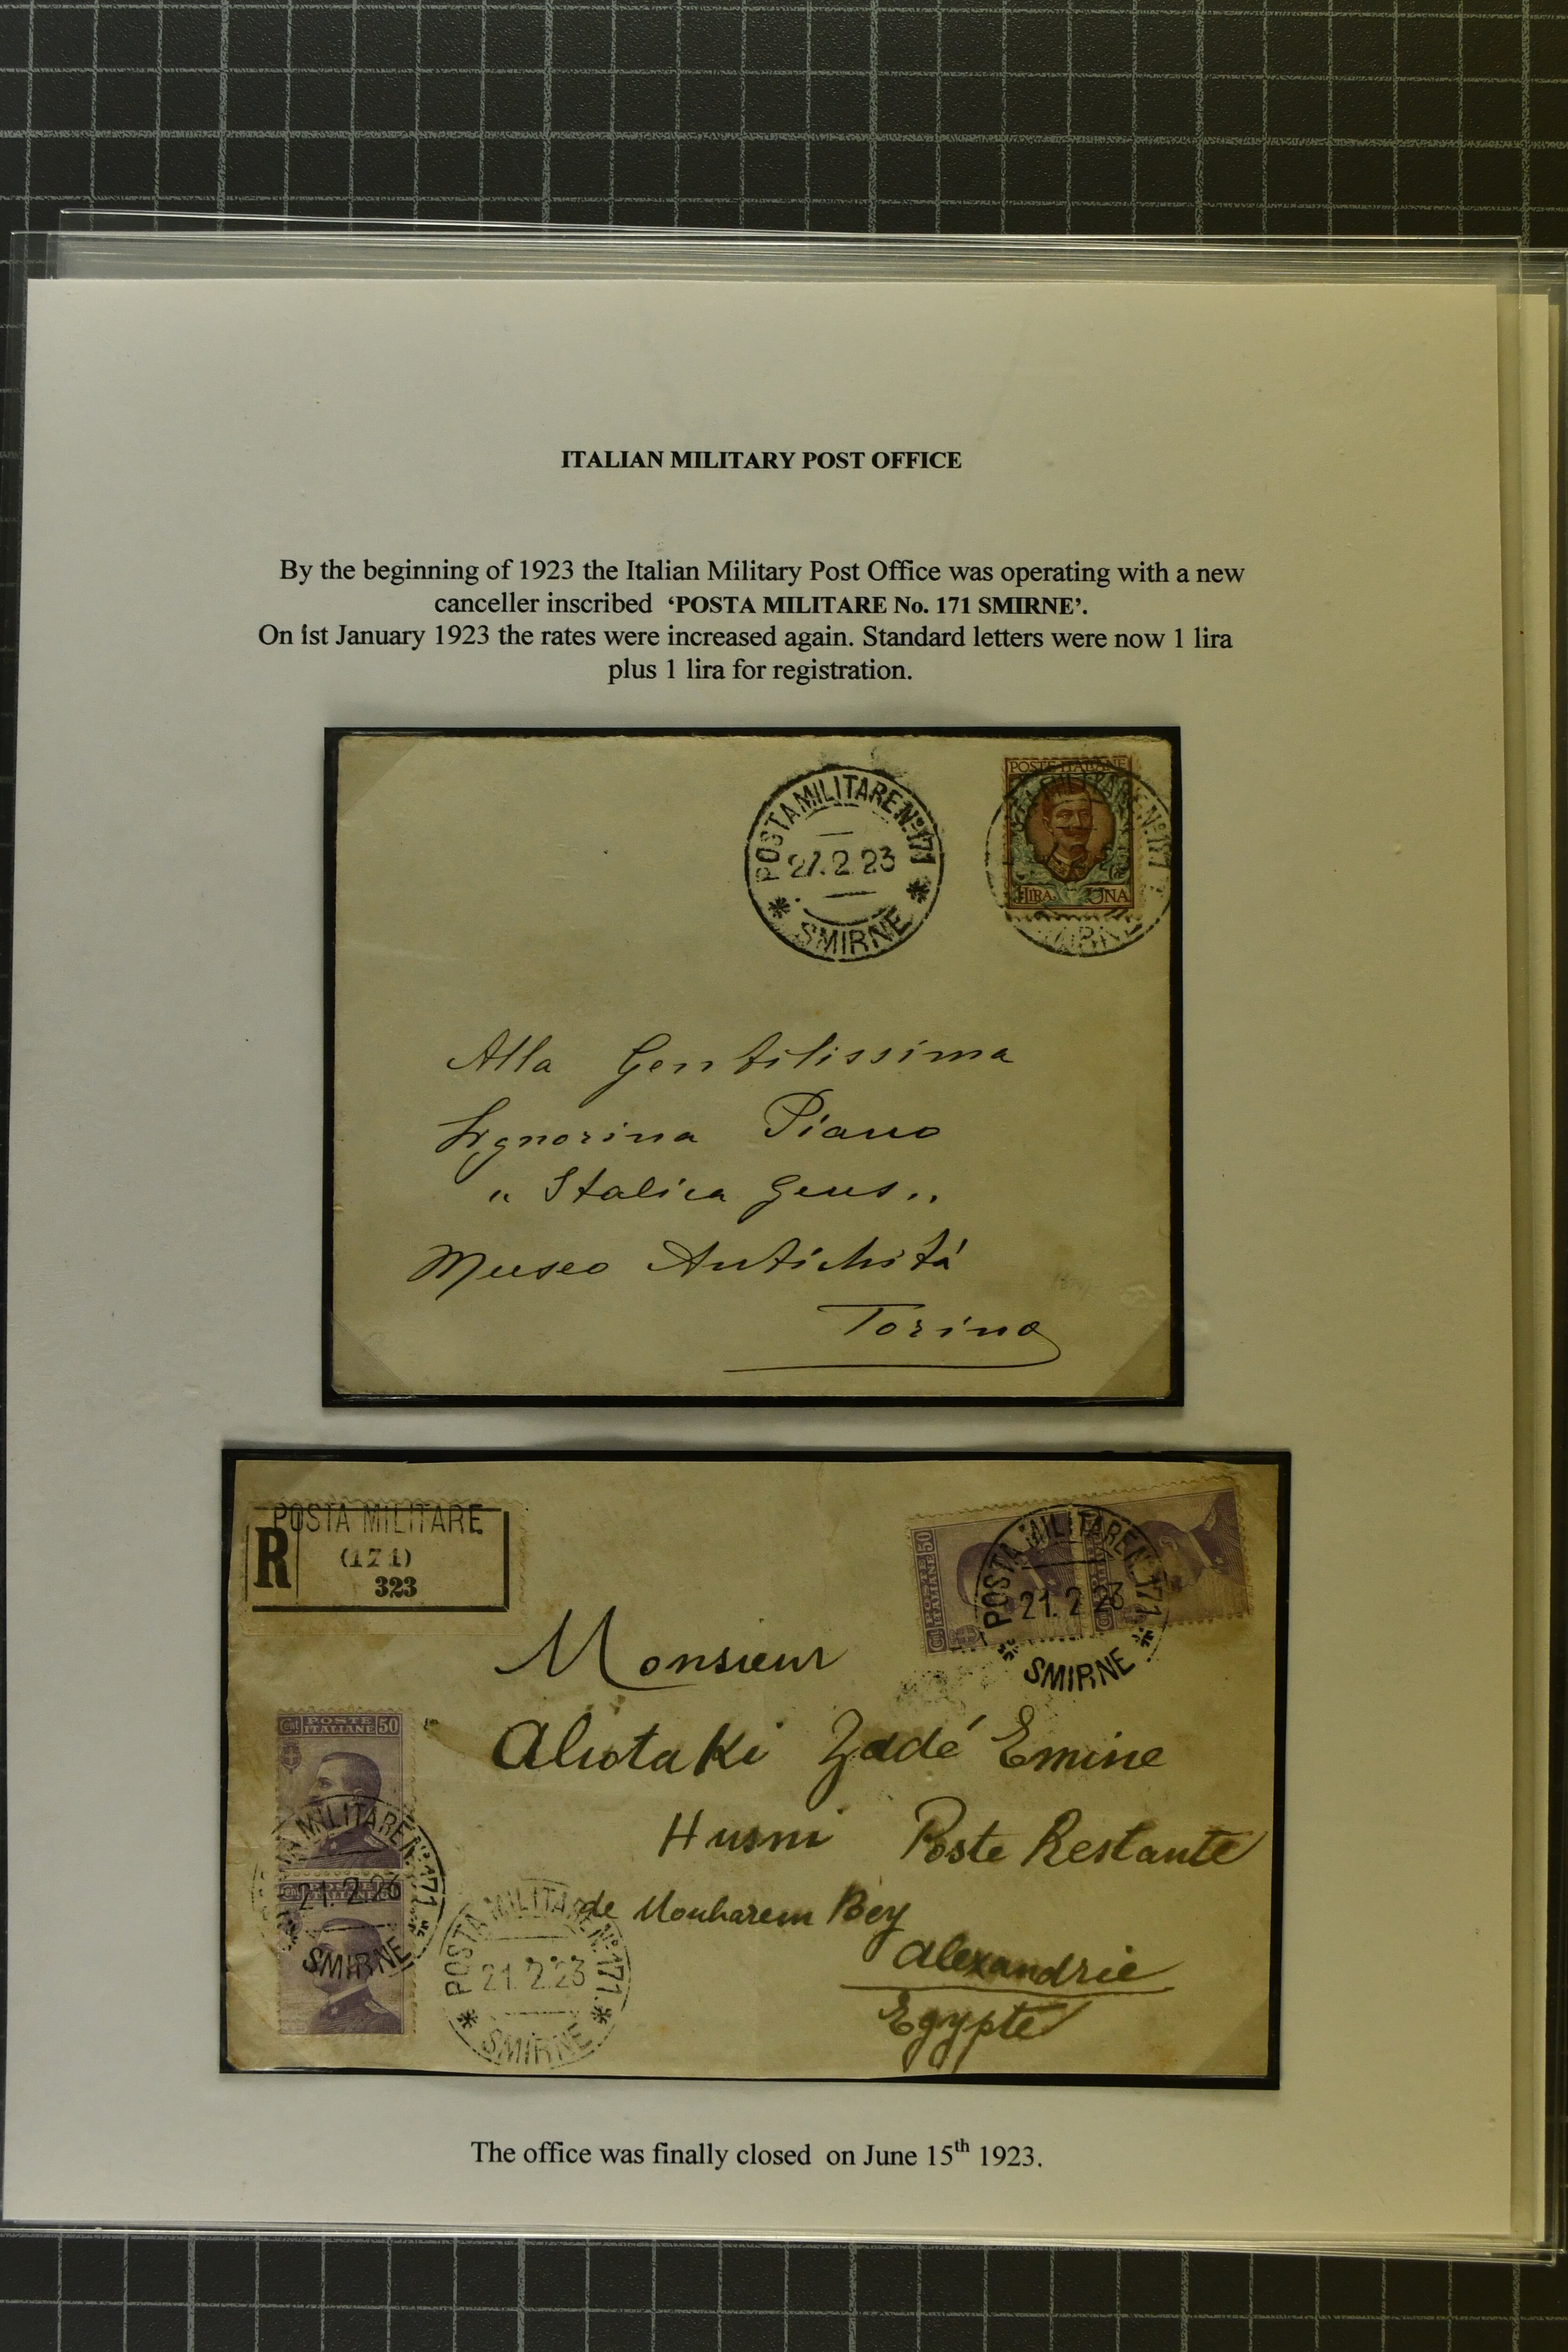 ITALIAN MILITARY POST OFFICE
By the beginning of 1923 the Italian Military Post Office was operating with a new
canceller inscribed 'POSTA MILITARE No. 171 SMIRNE'.
On 1st January 1923 the rates were increased again. Standard letters were now 1 lira
plus 1 lira for registration.
POSTA MILITARE Nº 171
27.2.23
SMIRNE
POSTE ITALIANE
LIRA UNA
Alla Gentilissima
Signorina Piano
" Italica Gens "
Museo Antichitá
Torino
POSTA MILITARE
R
(171)
323
POSTE ITALIANE 50
POSTA MILITARE Nº 171
21.2.23
SMIRNE
Monsieur
Aliotaki Zadé Emine
Husni Poste Restante
de Mouharem Bey
Alexandrie
Egypte
Cmi POSTE ITALIANE 50
MILITARE Nº 171
21.2.23
SMIRNE
POSTA MILITARE Nº 171
21.2.23
SMIRNE
The office was finally closed on June 15th 1923.